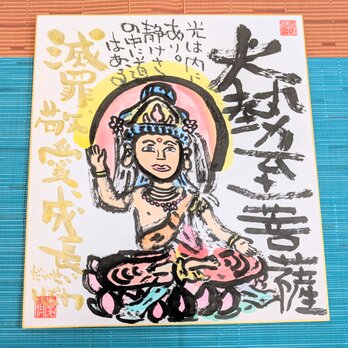 大勢至菩薩
光は内に
あり。
静けさ
の中に道
はある
滅罪敬愛成長
だいせいし
ぼさつ